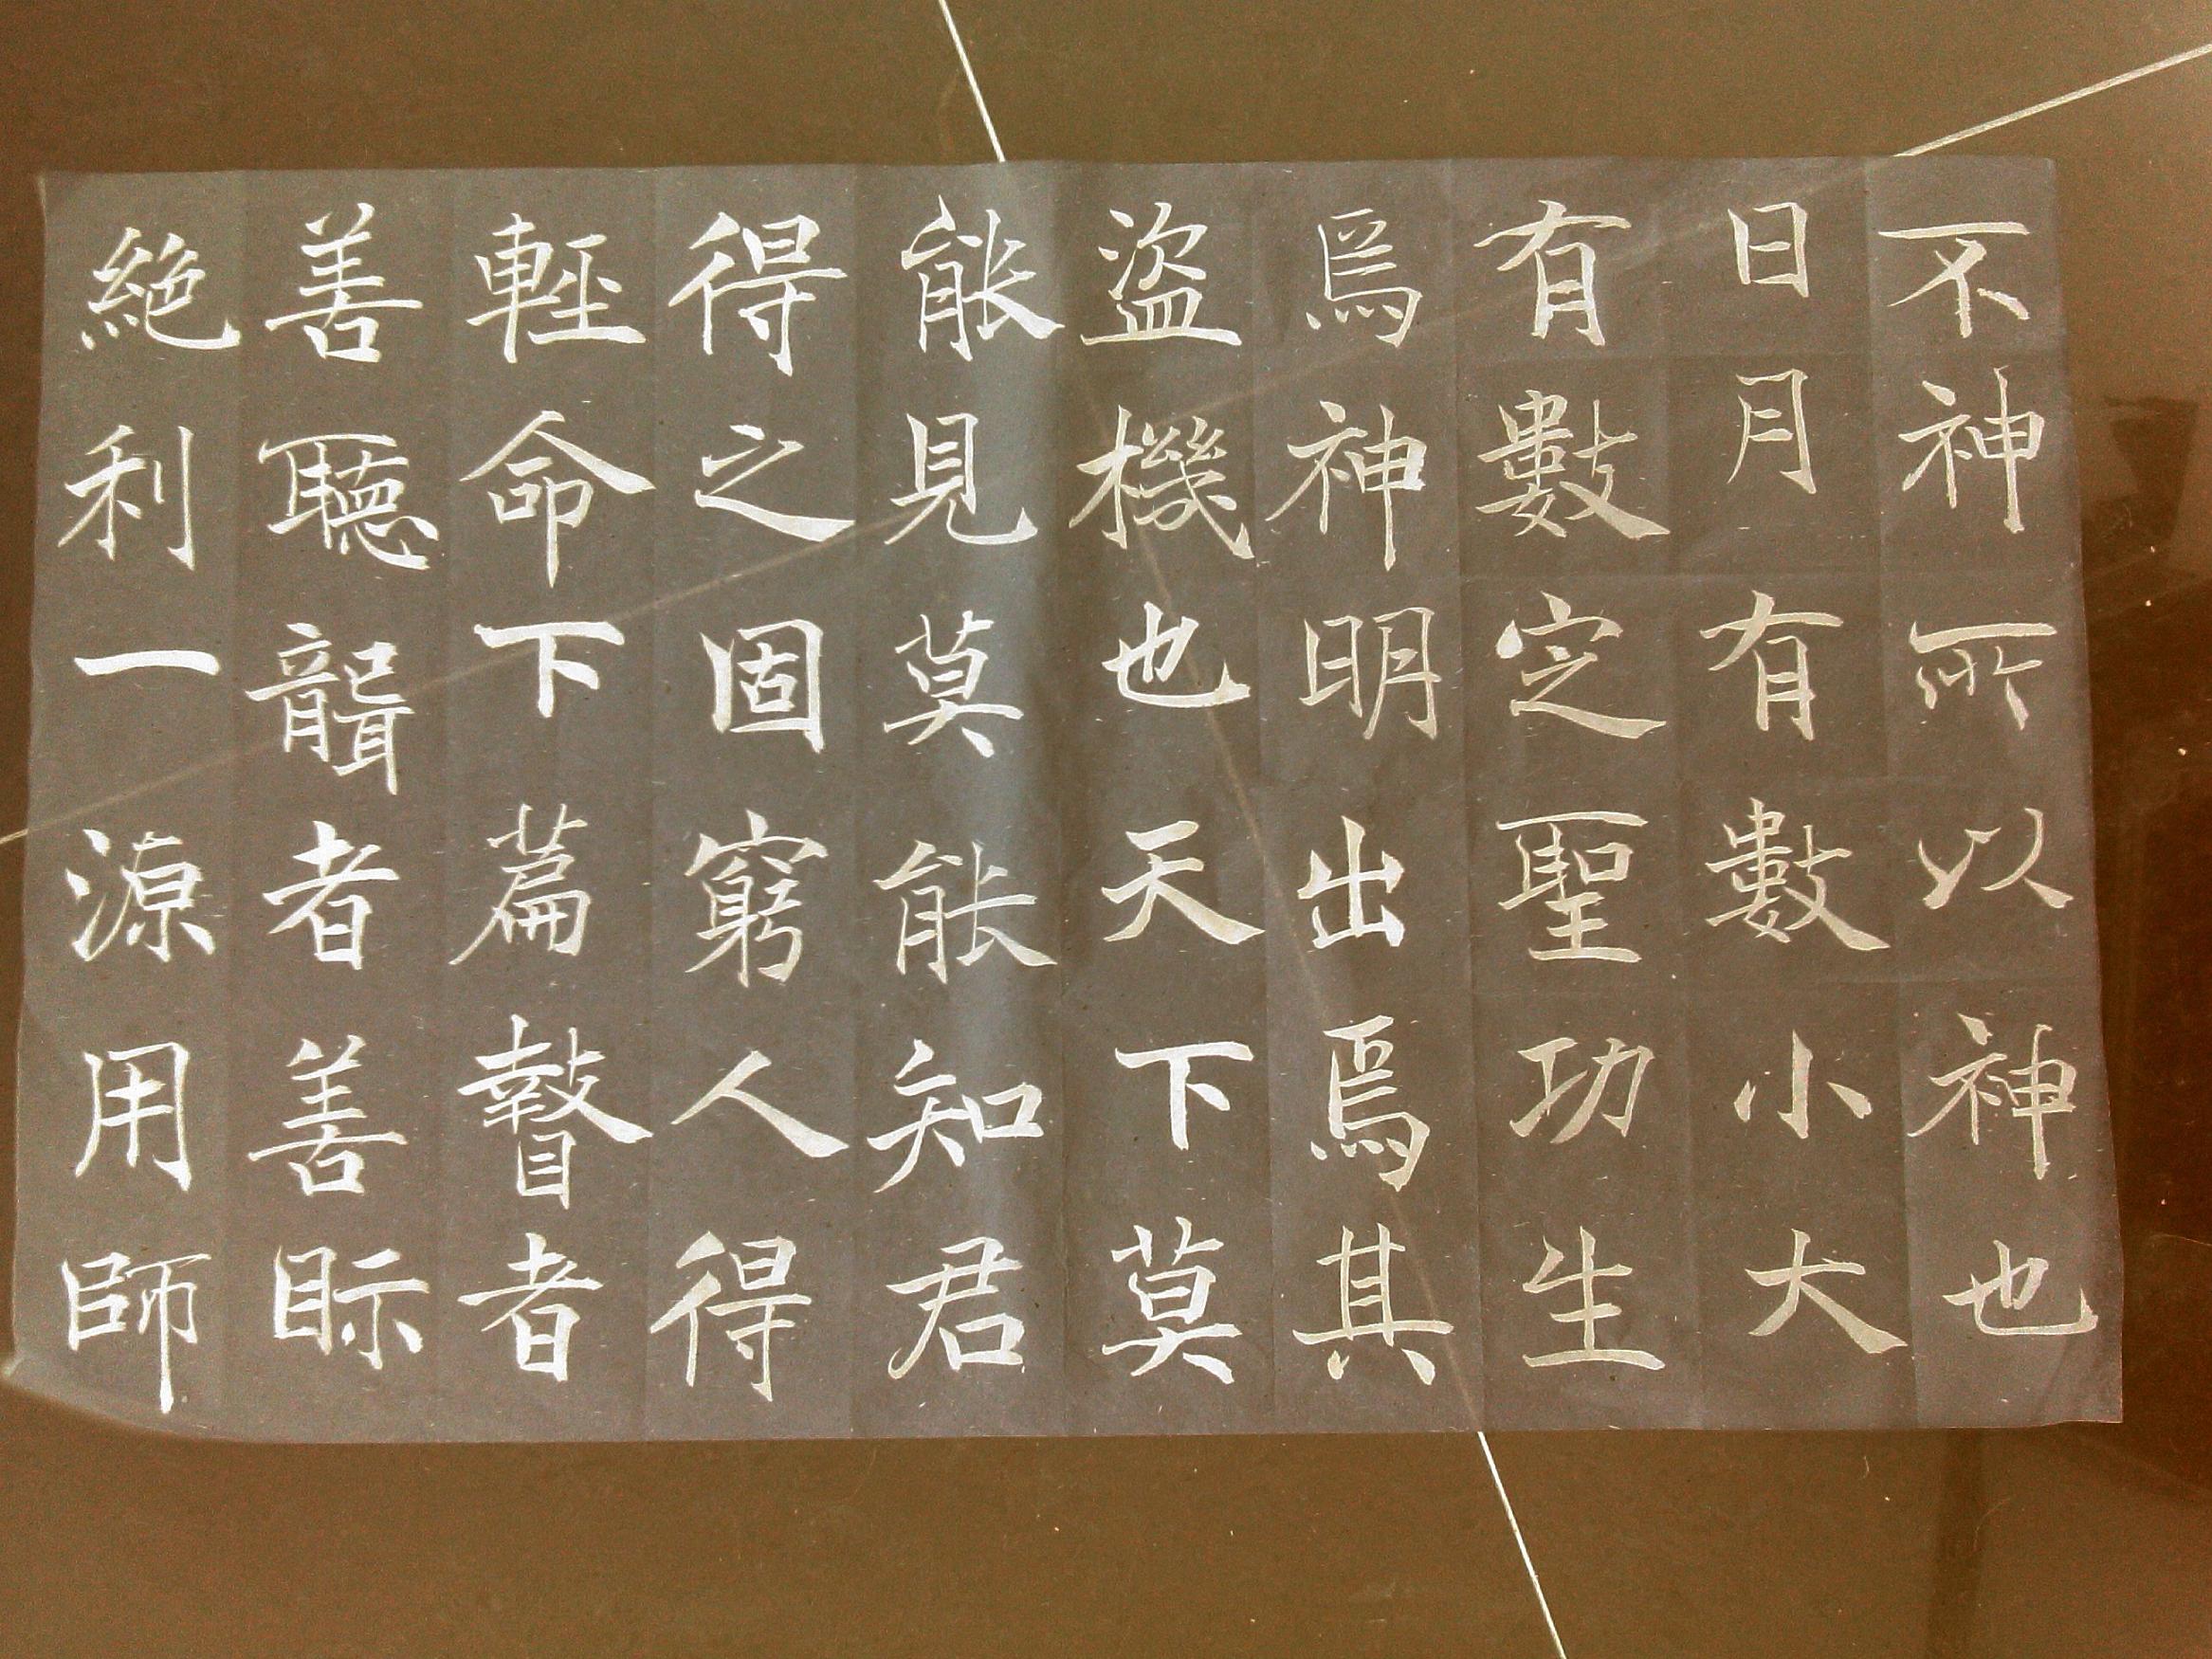 不神所以神也
日月有數小大
有數定聖功生
焉神明出焉其
盜機也天下莫
能見莫能知君
得之固窮人得
輕命下篇瞽者
善聽聾者善眎
絶利一源用師